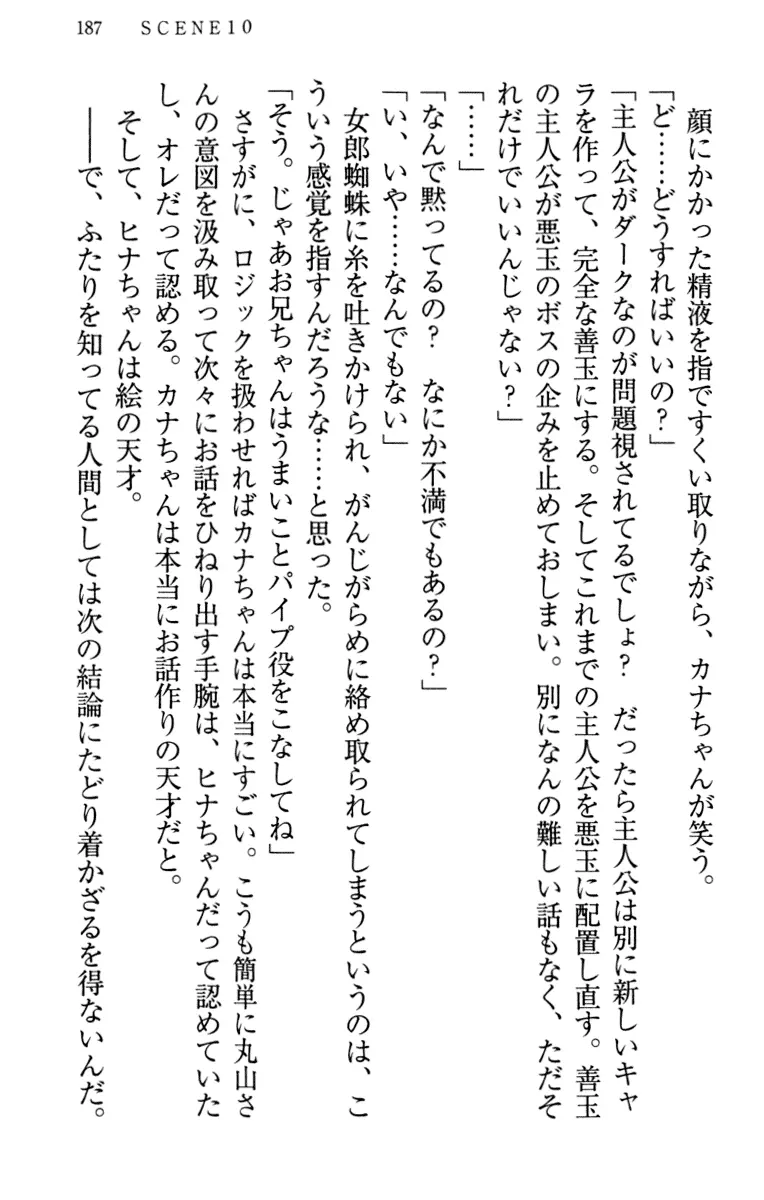 187 SCENE10
顔にかかった精液を指ですくい取りながら、カナちゃんが笑う。
「ど……どうすればいいの？」
「主人公がダークなのが問題視されてるでしょ？　だったら主人公は別に新しいキャ
ラを作って、完全な善玉にする。そしてこれまでの主人公を悪玉に配置し直す。善玉
の主人公が悪玉のボスの企みを止めておしまい。別になんの難しい話もなく、ただそ
れだけでいいんじゃない？」
「……」
「なんで黙ってるの？　なにか不満でもあるの？」
「い、いや……なんでもない」
女郎蜘蛛に糸を吐きかけられ、がんじがらめに絡め取られてしまうというのは、こ
ういう感覚を指すんだろうな……と思った。
「そう。じゃあお兄ちゃんはうまいことパイプ役をこなしてね」
さすがに、ロジックを扱わせればカナちゃんは本当にすごい。こうも簡単に丸山さ
んの意図を汲み取って次々にお話をひねり出す手腕は、ヒナちゃんだって認めていた
し、オレだって認める。カナちゃんは本当にお話作りの天才だと。
そして、ヒナちゃんは絵の天才。
――で、ふたりを知ってる人間としては次の結論にたどり着かざるを得ないんだ。